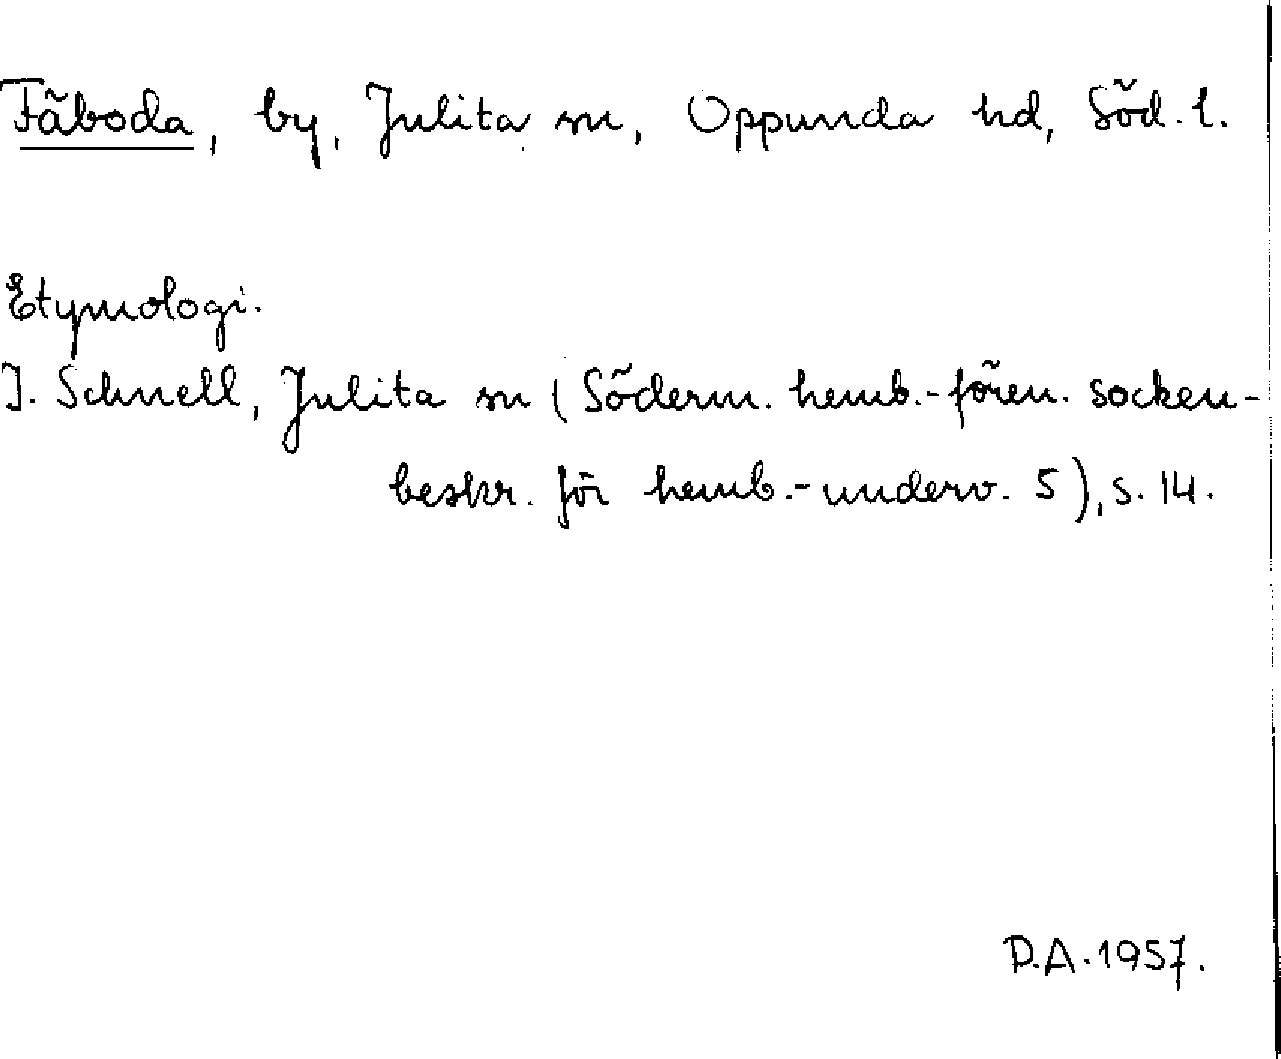 Fäboda, by, Julita sn, Oppunda hd, Söd. l.
Etymologi.
I. Schnell, Julita sn (Söderm. hemb.-fören. socken-
beskr. för hemb.-underv. 5), s. 14.
D.A. 1957.